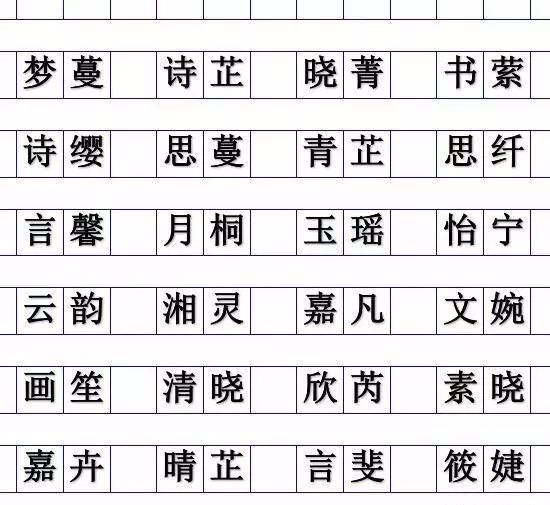 梦蔓 诗芷 晓菁 书萦
诗缨 思蔓 青芷 思纤
言馨 月桐 玉瑶 怡宁
云韵 湘灵 嘉凡 文婉
画笙 清晓 欣芮 素晓
嘉卉 晴芷 言斐 筱婕